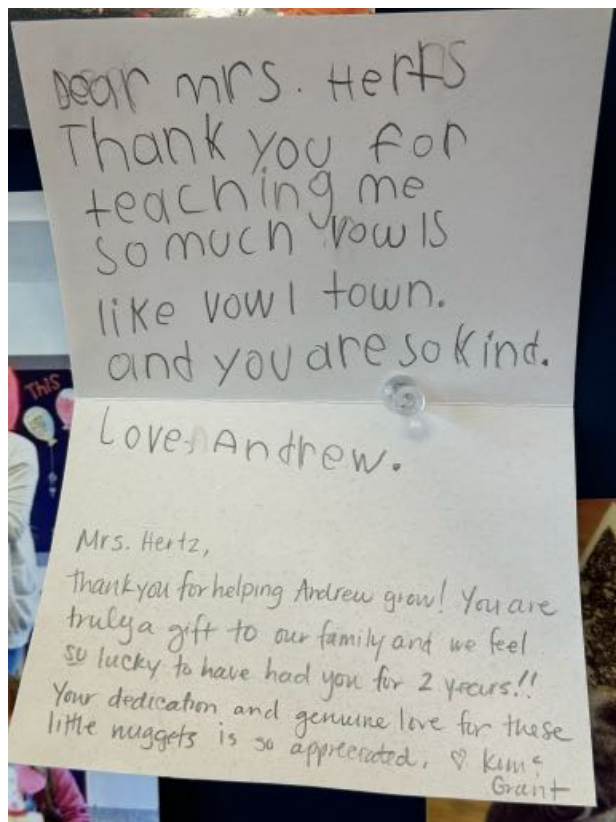 Dear mrs. Herts
Thank you for
teaching me
so much vowls
like vowl town.
and you are so kind.
Love, Andrew.
Mrs. Hertz,
Thank you for helping Andrew grow! You are
truly a gift to our family and we feel
so lucky to have had you for 2 years!!
Your dedication and genuine love for these
little nuggets is so appreciated. ♡ Kim &
Grant
THIS